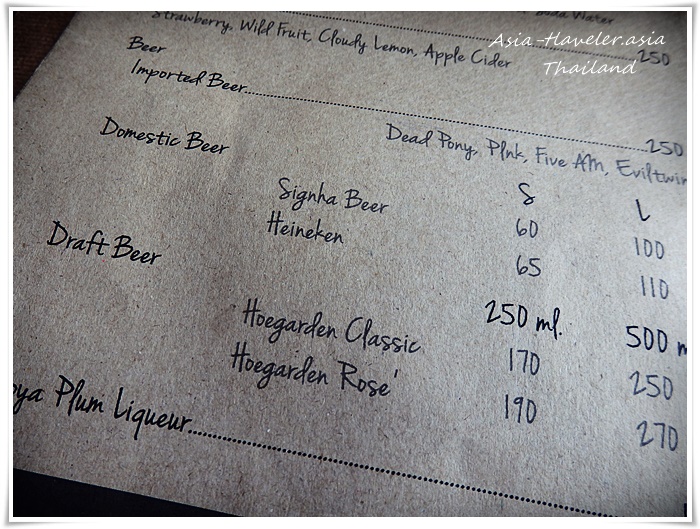 Soda Water
Strawberry, Wild Fruit, Cloudy Lemon, Apple Cider 250
Asia-Haveler.asia
Thailand
Beer
Imported Beer 250
Dead Pony, PInk, Five AM, Eviltwin
Domestic Beer
S L
Signha Beer 60 100
Heineken 65 110
Draft Beer
250 ml. 500 m
Hoegarden Classic 170 250
Hoegarden Rose' 190 270
oya Plum Liqueur